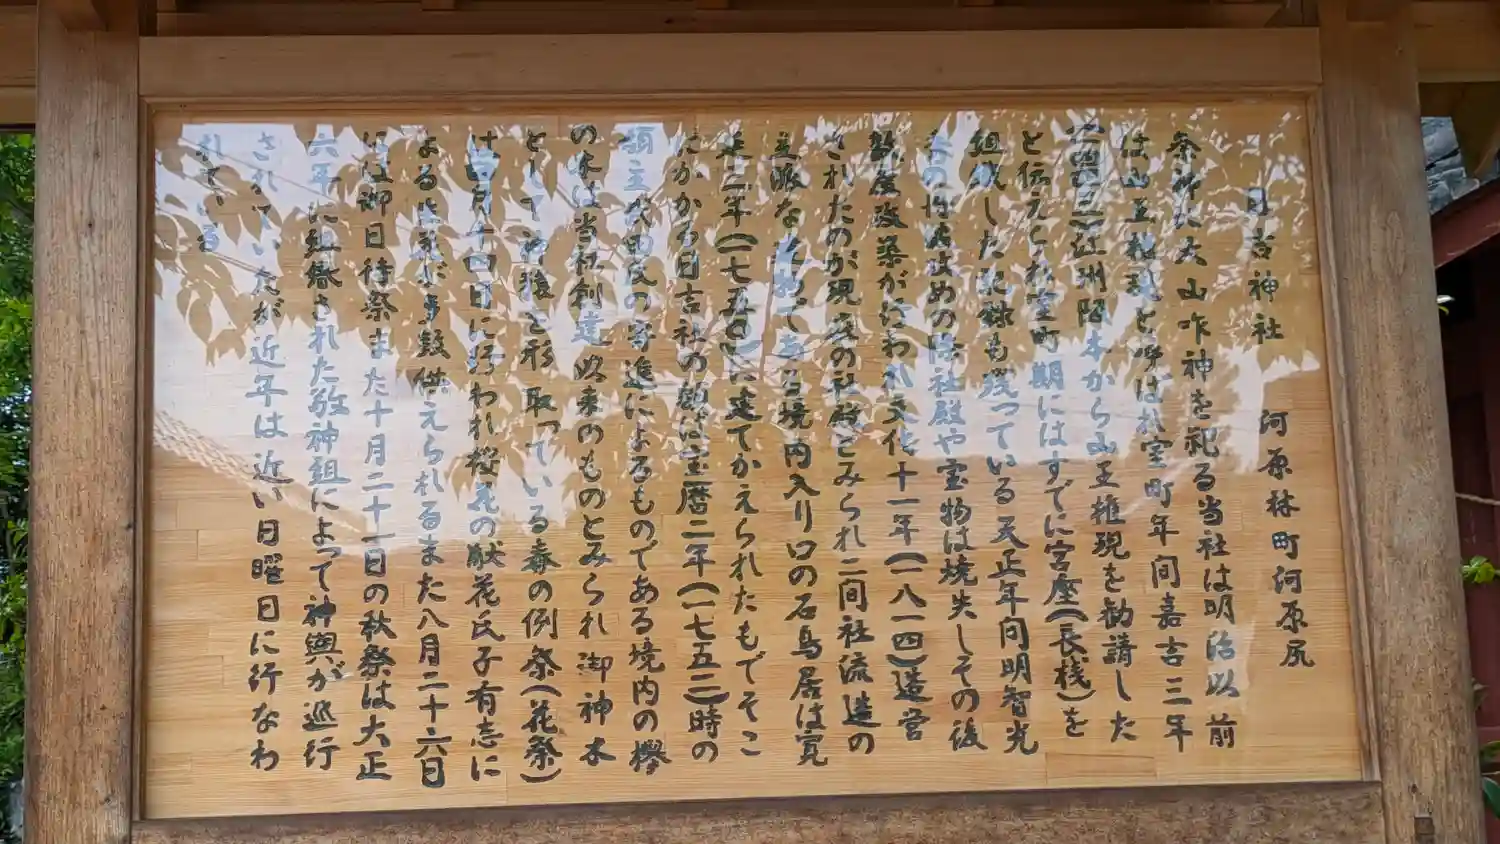 日吉神社 河原林町河原尻
祭神に大山咋神を祀る当社は明治以前
は山王権現と呼ばれ室町年間嘉吉三年
(一四四三)江州阪本から山王権現を勧請した
と伝えられ室町期にはすでに宮座(長桟)を
組織した記録も残っている天正年間明智光
秀の丹波攻めの際社殿や宝物は焼失しその後
数度改築が行われ文化十一年(一八一四)造営
されたのが現在の社殿とみられ二間社流造の
立派なそって ある境内入り口の石鳥居は寛
延三年(一七五〇)に建てかえられたもでそこ
にかかる日吉社の額は宝暦二年(一七五二)時の
領主 氏の寄進によるものである境内の欅
の木は当社創建以来のものとみられ御神木
として神 を形取っている春の例祭(花祭)
は四月十四日に行われ桜花の献花氏子有志に
よる 供えられるまた八月二十六日
には御日待祭また十月二十一日の秋祭は大正
六年に組織された敬神組によって神輿が巡行
されていたが近年は近い日曜日に行なわ
れている